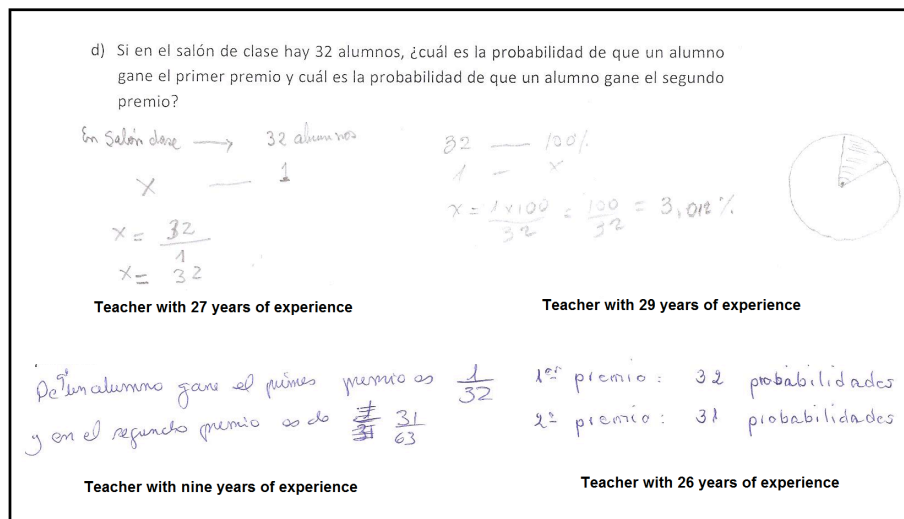 d) Si en el salón de clase hay 32 alumnos, ¿cuál es la probabilidad de que un alumno
gane el primer premio y cuál es la probabilidad de que un alumno gane el segundo
premio?
En Salón clase → 32 alumnos
x — 1
x = 32
1
x = 32
Teacher with 27 years of experience
32 — 100%
1 — x
x = 1x100 = 100 = 3,012%
32 32
Teacher with 29 years of experience
un alumno gane el primer premio es 1
32
y en el segundo premio es de 31
63
Teacher with nine years of experience
1er premio: 32 probabilidades
2º premio: 31 probabilidades
Teacher with 26 years of experience